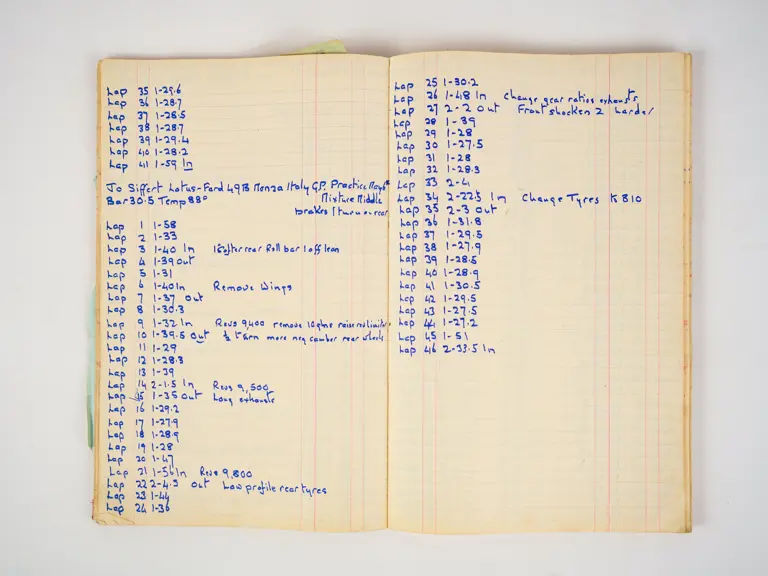 Lap 35 1-29.6
Lap 36 1-28.7
Lap 37 1-28.5
Lap 38 1-28.7
Lap 39 1-29.4
Lap 40 1-28.2
Lap 41 1-59 In
Jo Siffert Lotus-Ford 49B Monza Italy G.P. Practice
Bar 30.5 Temp 88° Mixture Middle
brakes 1 turn on rear
Lap 1 1-58
Lap 2 1-33
Lap 3 1-40 In softer rear Roll bar 1 off lean
Lap 4 1-39 out
Lap 5 1-31
Lap 6 1-40 In Remove Wings
Lap 7 1-37 out
Lap 8 1-30.3
Lap 9 1-32 In Revs 9,400 remove raise rev limiter
Lap 10 1-39.5 Out ½ turn more neg camber rear wheels
Lap 11 1-29
Lap 12 1-28.8
Lap 13 1-39
Lap 14 2-1.5 In Revs 9,500
Lap 15 1-35 out Long exhausts
Lap 16 1-29.2
Lap 17 1-27.9
Lap 18 1-28.9
Lap 19 1-28
Lap 20 1-47
Lap 21 1-56 In Revs 9,800
Lap 22 2-4.9 Out Low profile rear tyres
Lap 23 1-44
Lap 24 1-36
Lap 25 1-30.2
Lap 26 1-48 In Change gear ratios exhausts
Lap 27 2-2 Out Front shocken 2 harder
Lap 28 1-39
Lap 29 1-28
Lap 30 1-27.5
Lap 31 1-28
Lap 32 1-28.3
Lap 33 2-4
Lap 34 2-22.5 In Change Tyres to 810
Lap 35 2-3 out
Lap 36 1-31.8
Lap 37 1-29.5
Lap 38 1-27.9
Lap 39 1-28.5
Lap 40 1-28.9
Lap 41 1-30.5
Lap 42 1-29.5
Lap 43 1-27.5
Lap 44 1-27.2
Lap 45 1-51
Lap 46 2-33.5 In